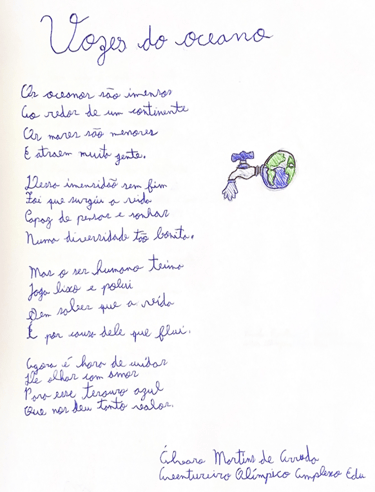 Vozes do oceano
Os oceanos são imensos
Ao redor de um continente
Os mares são menores
E atraem muita gente.
Nessa imensidão sem fim
Foi que surgiu a vida
Capaz de pensar e sonhar
Numa diversidade tão bonita.
Mas o ser humano teima
Joga lixo e polui
Sem saber que a vida
É por causa dele que flui.
Agora é hora de cuidar
De olhar com amor
Para esse tesouro azul
Que nos deu tanto valor.
Martins de Arruda
Olímpico Complexo Edu